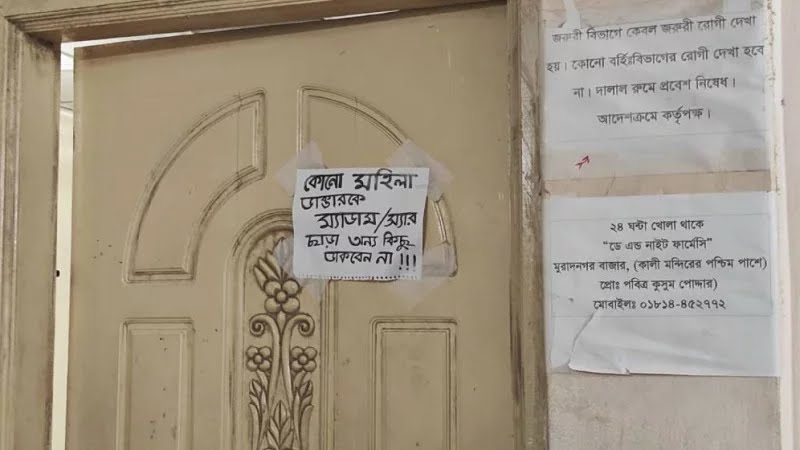 কোনো মহিলা
ডাক্তারকে
ম্যাডাম/স্যার
ছাড়া অন্য কিছু
ডাকবেন না !!!
জরুরী বিভাগে কেবল জরুরী রোগী দেখা
হয়। কোনো বর্হিঃবিভাগের রোগী দেখা হবে
না। দালাল রুমে প্রবেশ নিষেধ।
আদেশক্রমে কর্তৃপক্ষ।
২৪ ঘন্টা খোলা থাকে
"ডে এন্ড নাইট ফার্মেসি"
মুরাদনগর বাজার, (কালী মন্দিরের পশ্চিম পাশে)
প্রোঃ পবিত্র কুসুম পোদ্দার)
মোবাইলঃ ০১৮১৪-৪৫২৭৭২